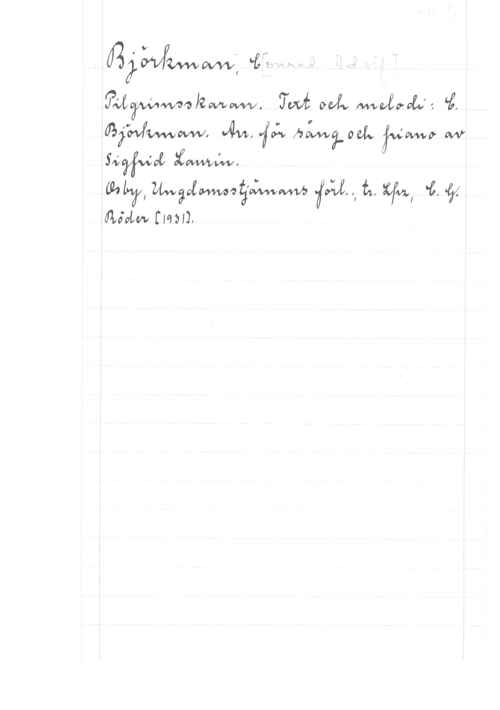 Björkman, C[onrad Adolf]
Pilgrimsskaran. Text och melodi: C.
Björkman. Arr. för sång och piano av
Sigfrid Laurin.
Osby, Ungdomsstjärnans förl.; tr. Lpz, C. G.
Röder [1931].